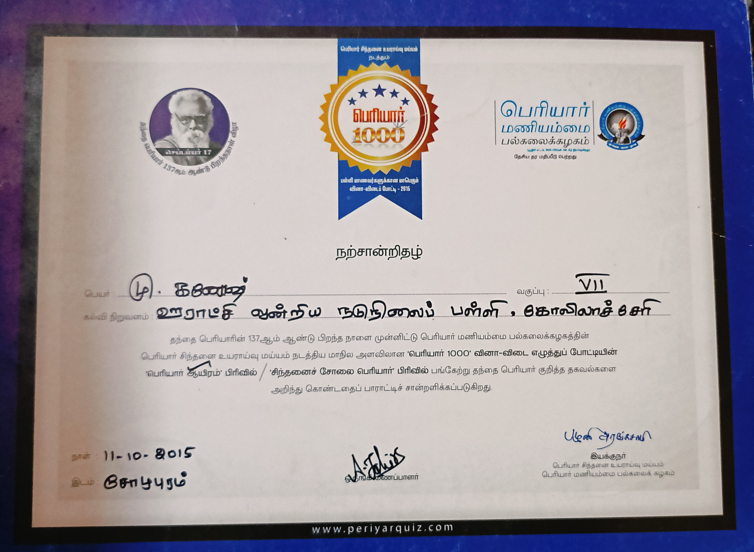 பெரியார் சிந்தனை உயராய்வு மய்யம்
நடத்தும்
பெரியார்
1000
பள்ளி மாணவர்களுக்கான மாபெரும்
வினா-விடைப் போட்டி - 2015
செப்டம்பர் 17
தந்தை பெரியார் 137ஆம் ஆண்டு பிறந்தநாள் விழா
பெரியார்
மணியம்மை
பல்கலைக்கழகம்
தேசிய தர மதிப்பீடு பெற்றது
நற்சான்றிதழ்
பெயர் : மு. கணேஷ் வகுப்பு : VII
கல்வி நிறுவனம் : ஊராட்சி ஒன்றிய நடுநிலைப் பள்ளி,
தந்தை பெரியாரின் 137ஆம் ஆண்டு பிறந்த நாளை முன்னிட்டு பெரியார் மணியம்மை பல்கலைக்கழகத்தின்
பெரியார் சிந்தனை உயராய்வு மய்யம் நடத்திய மாநில அளவிலான 'பெரியார் 1000' வினா-விடை எழுத்துப் போட்டியின்
'பெரியார் ஆயிரம்' பிரிவில் / 'சிந்தனைச் சோலை பெரியார்' பிரிவில் பங்கேற்று தந்தை பெரியார் குறித்த தகவல்களை
அறிந்து கொண்டதைப் பாராட்டிச் சான்றளிக்கப்படுகிறது.
நாள் : 11-10-2015
இடம் : சோழபுரம்
இயக்குநர்
பெரியார் சிந்தனை உயராய்வு மய்யம்
பெரியார் மணியம்மை பல்கலைக் கழகம்
www.periyarquiz.com